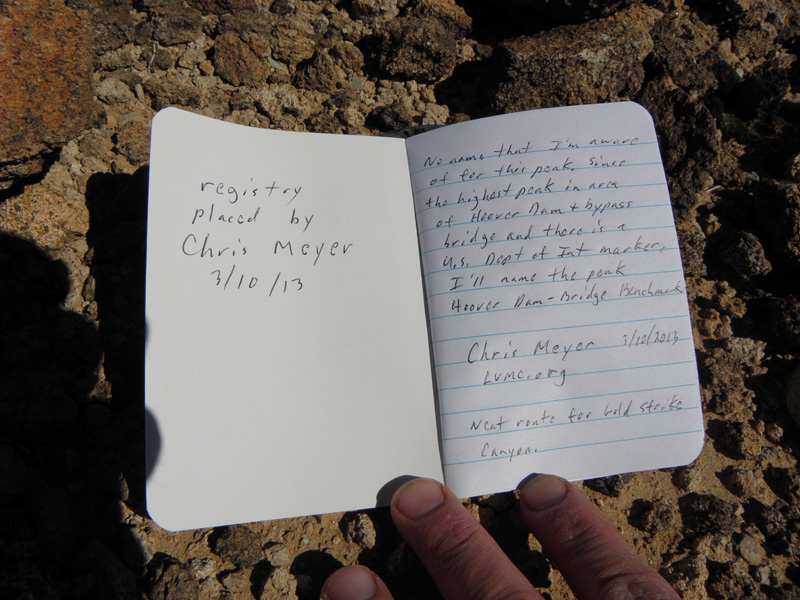 registry
placed by
Chris Meyer
3/10/13
No name that I'm aware
of for this peak, since
the highest peak in area
of Hoover Dam + bypass
bridge and there is a
U.S. Dept of Int marker,
I'll name the peak
Hoover Dam-Bridge Benchmark
Chris Meyer 3/10/2013
LVMC.org
Neat route for Gold Strike
Canyon.